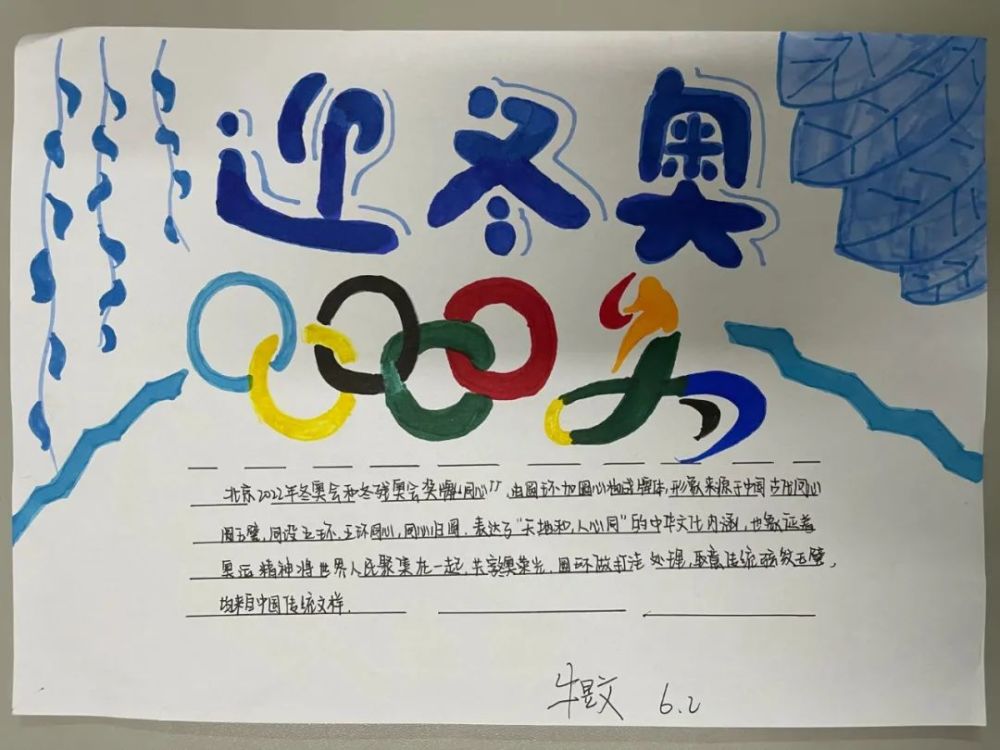 迎冬奥
北京2022年冬奥会和冬残奥会奖牌“同心”由圆环加圆心构成牌体,形象来源于中国古代同心
圆玉璧,同设五环.五环同心,同心归圆.表达了“天地和,人心同”的中华文化内涵,也象征着
奥运精神将世界人民聚集在一起,共享奥荣光.圆环做打洼处理,取意传统弦纹玉璧,
均来自中国传统文样.
牛昱文 6.2